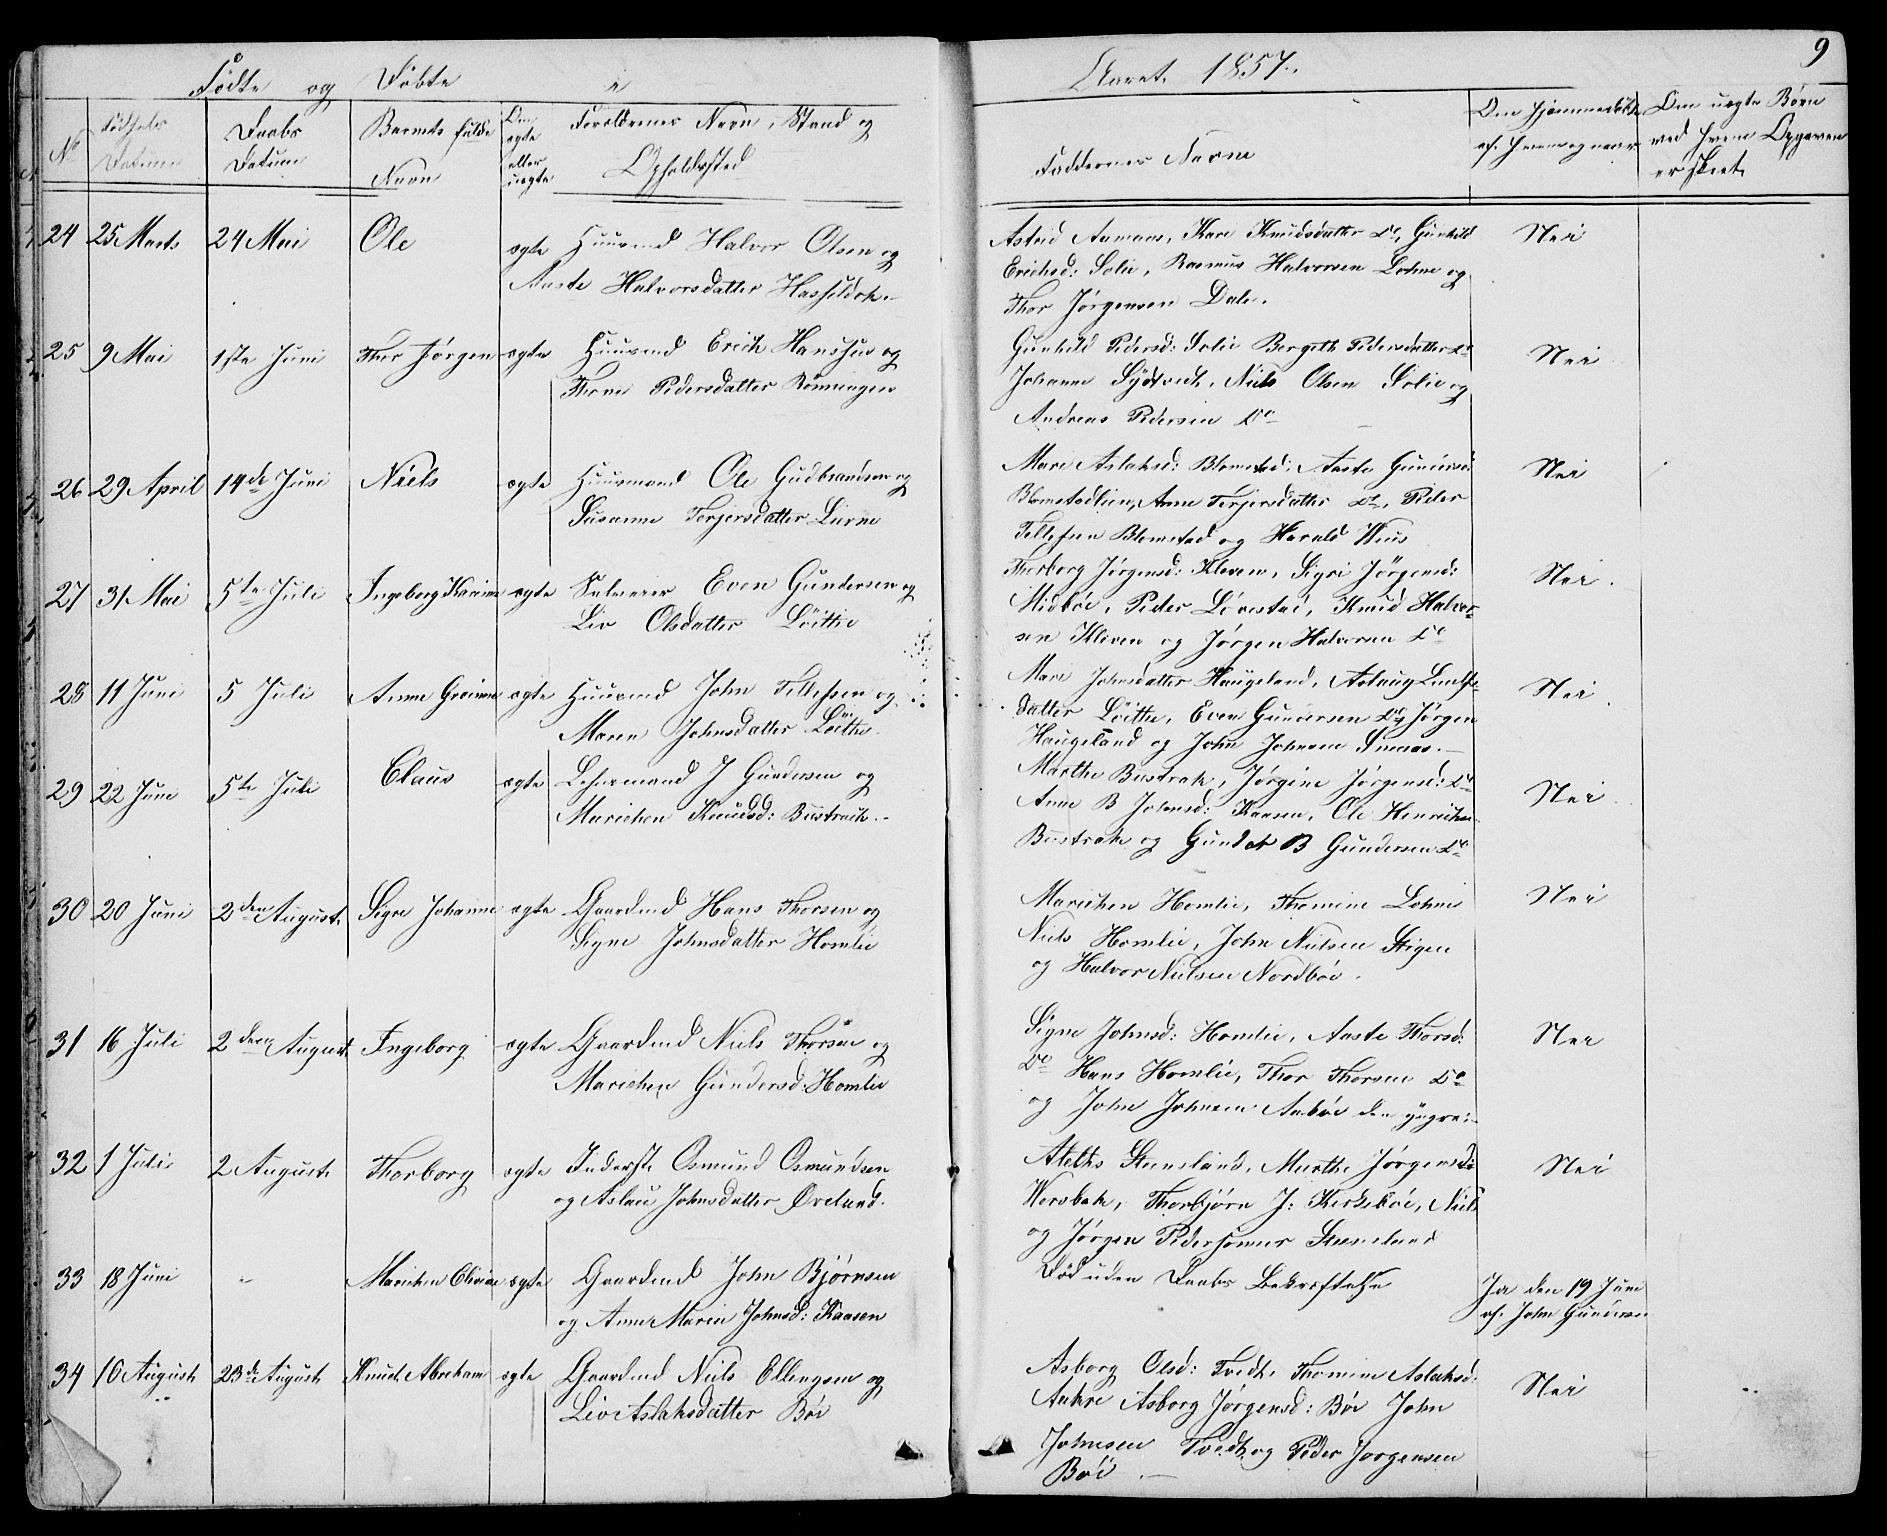 Fødte og Døbte i Aaret 1857. 9
No
Fødsels Datum
Daabs Datum
Barnets fulde Navn
Om ægte eller uægte
Forældrenes Navn, Stand og Opholdssted
Faddernes Navne
Om hjemmedøbt af hvem og naar
Om uægte Børn ved hvem Opgaven er skeet.
24 25 Marts 24 Mai Ole ægte Huusmd Halvor Olsen og
Aaste Halvorsdatter
Astrid Aamaas, Kari Knudsdatter Do, Gunhild
Erichsd: Solie, Rasmus Halvorsen Lohne og
Thor Jørgensen Dale.
Nei
25 9 Mai 1ste Juni Thor Jørgen ægte Huusmd Erich Hansen og
Thone Pedersdatter Rønningen
Gunhild Pedersd: Solie Bergith Pedersdatter Do
Johanne, Niels Olsen Solie og
Andreas Pedersen Do
Nei
26 29 April 14de Juni Niels ægte Huusmand Ole Gudbrandsen og
Susanne Terjersdatter
Mari Aslaksd: Blomstad, Aaste Gundersd:
Blomstadlien, Anne Terjersdatter Do, Peder
Tellefsen Blomstad og Harald
Nei
27 31 Mai 5te Juli Ingeborg Karine ægte Selveier Even Gundersen og
Liv Olsdatter Löithe
Thorborg Jørgensd: Kleven, Sigri Jørgensd:
Midbøe, Peder Løvestad, Knud Halvor-
sen Kleven og Jørgen Halvorsen Do
Nei.
28 11 Juni 5 Juli Anne Gurine ægte Huusmd John Tellefsen og
Maren Johnsdatter Löithe.
Mari Johnsdatter Haugeland, Aslaug
datter Löithe, Even Gundersen Do Jørgen
Haugeland og John Johnsen
Nei
29 22 Juni 5te Juli Claus ægte Lehnsmand J Gundersen og
Marichen Knudsd: Bustrak.-
Marthe Bustrak, Jørgine Jørgensd: Do
Anne B Johnsd: Kaasen, Ole Henrichsen
Bustrak og Gunder B Gundersen Do
Nei
30 20 Juni 2den August Signe Johanne ægte Gaardmd Hans Thorsen og
Signe Johnsdatter Homlie
Marichen Homlie, Thomine Lohne
Niels Homlie, John Nielsen Stigen
og Halvor Nielsen Nordbøe.
Nei
31 16 Juli 2den August Ingeborg ægte Gaardmd Niels Thorsen og
Marichen Gundersd: Homlie
Signe Johnsd: Homlie, Aaste Thorsd:
Do Hans Homlie, Thor Thorsen Do
og John Johnsen Aabøe den yngre.
Nei
32 1 Juli 2 August Thorborg ægte Inderste Osmund Osmundsen
og Aslau Johnsdatter Øveland.
Aleths Steensland, Marthe Jørgensd:
Thorbjørn J: Kirkebøe, Niels
og Jørgen Pedersønner Steensland
Nei
33 18 Juni - Marichen Olivia ægte Gaardmd John Bjørnsen
og Anne Marie Johnsd: Kaasen
Død uden Daabs Bekræftelse
Ja den 19 Juni
af John Gundersen
34 10 August 23de August Knud Abraham ægte Gaardmd Niels Ellingsen og
Live Aslaksdatter Bøe
Asborg Olsd: Tvedt, Thomine Aslaksd:
Aakre Asborg Jørgensd: Bøe John
Johnsen Tvedt og Peder Jørgensen
Bøe.
Nei